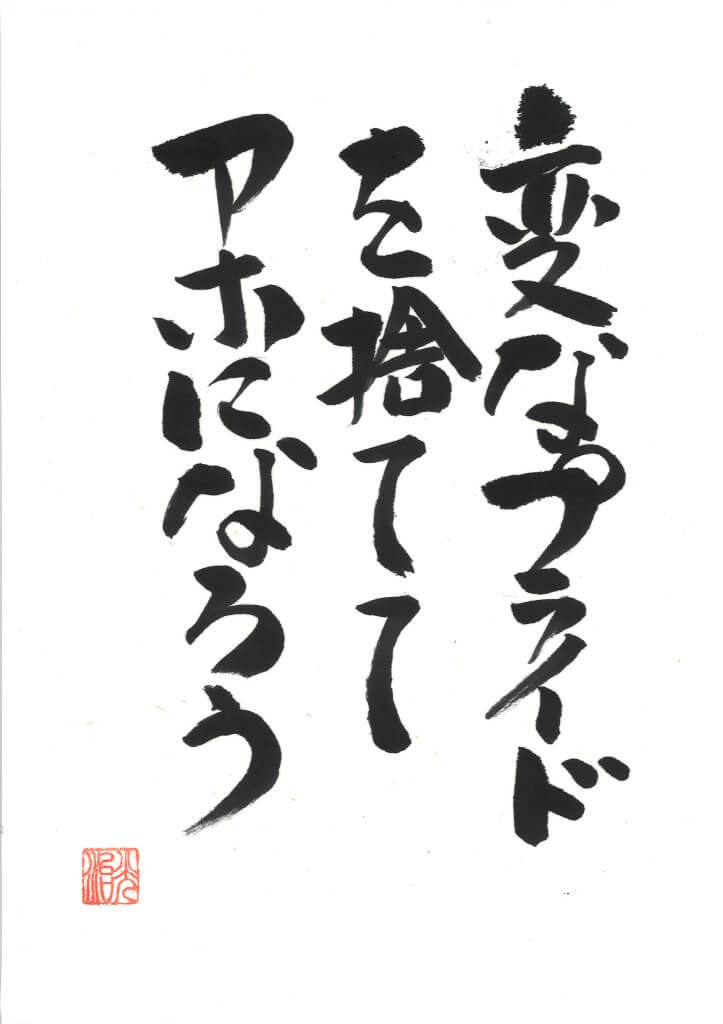 変なプライド
を捨てて
アホになろう